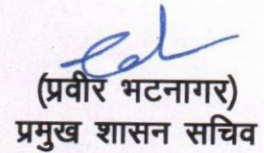 (प्रवीर भटनागर)
प्रमुख शासन सचिव